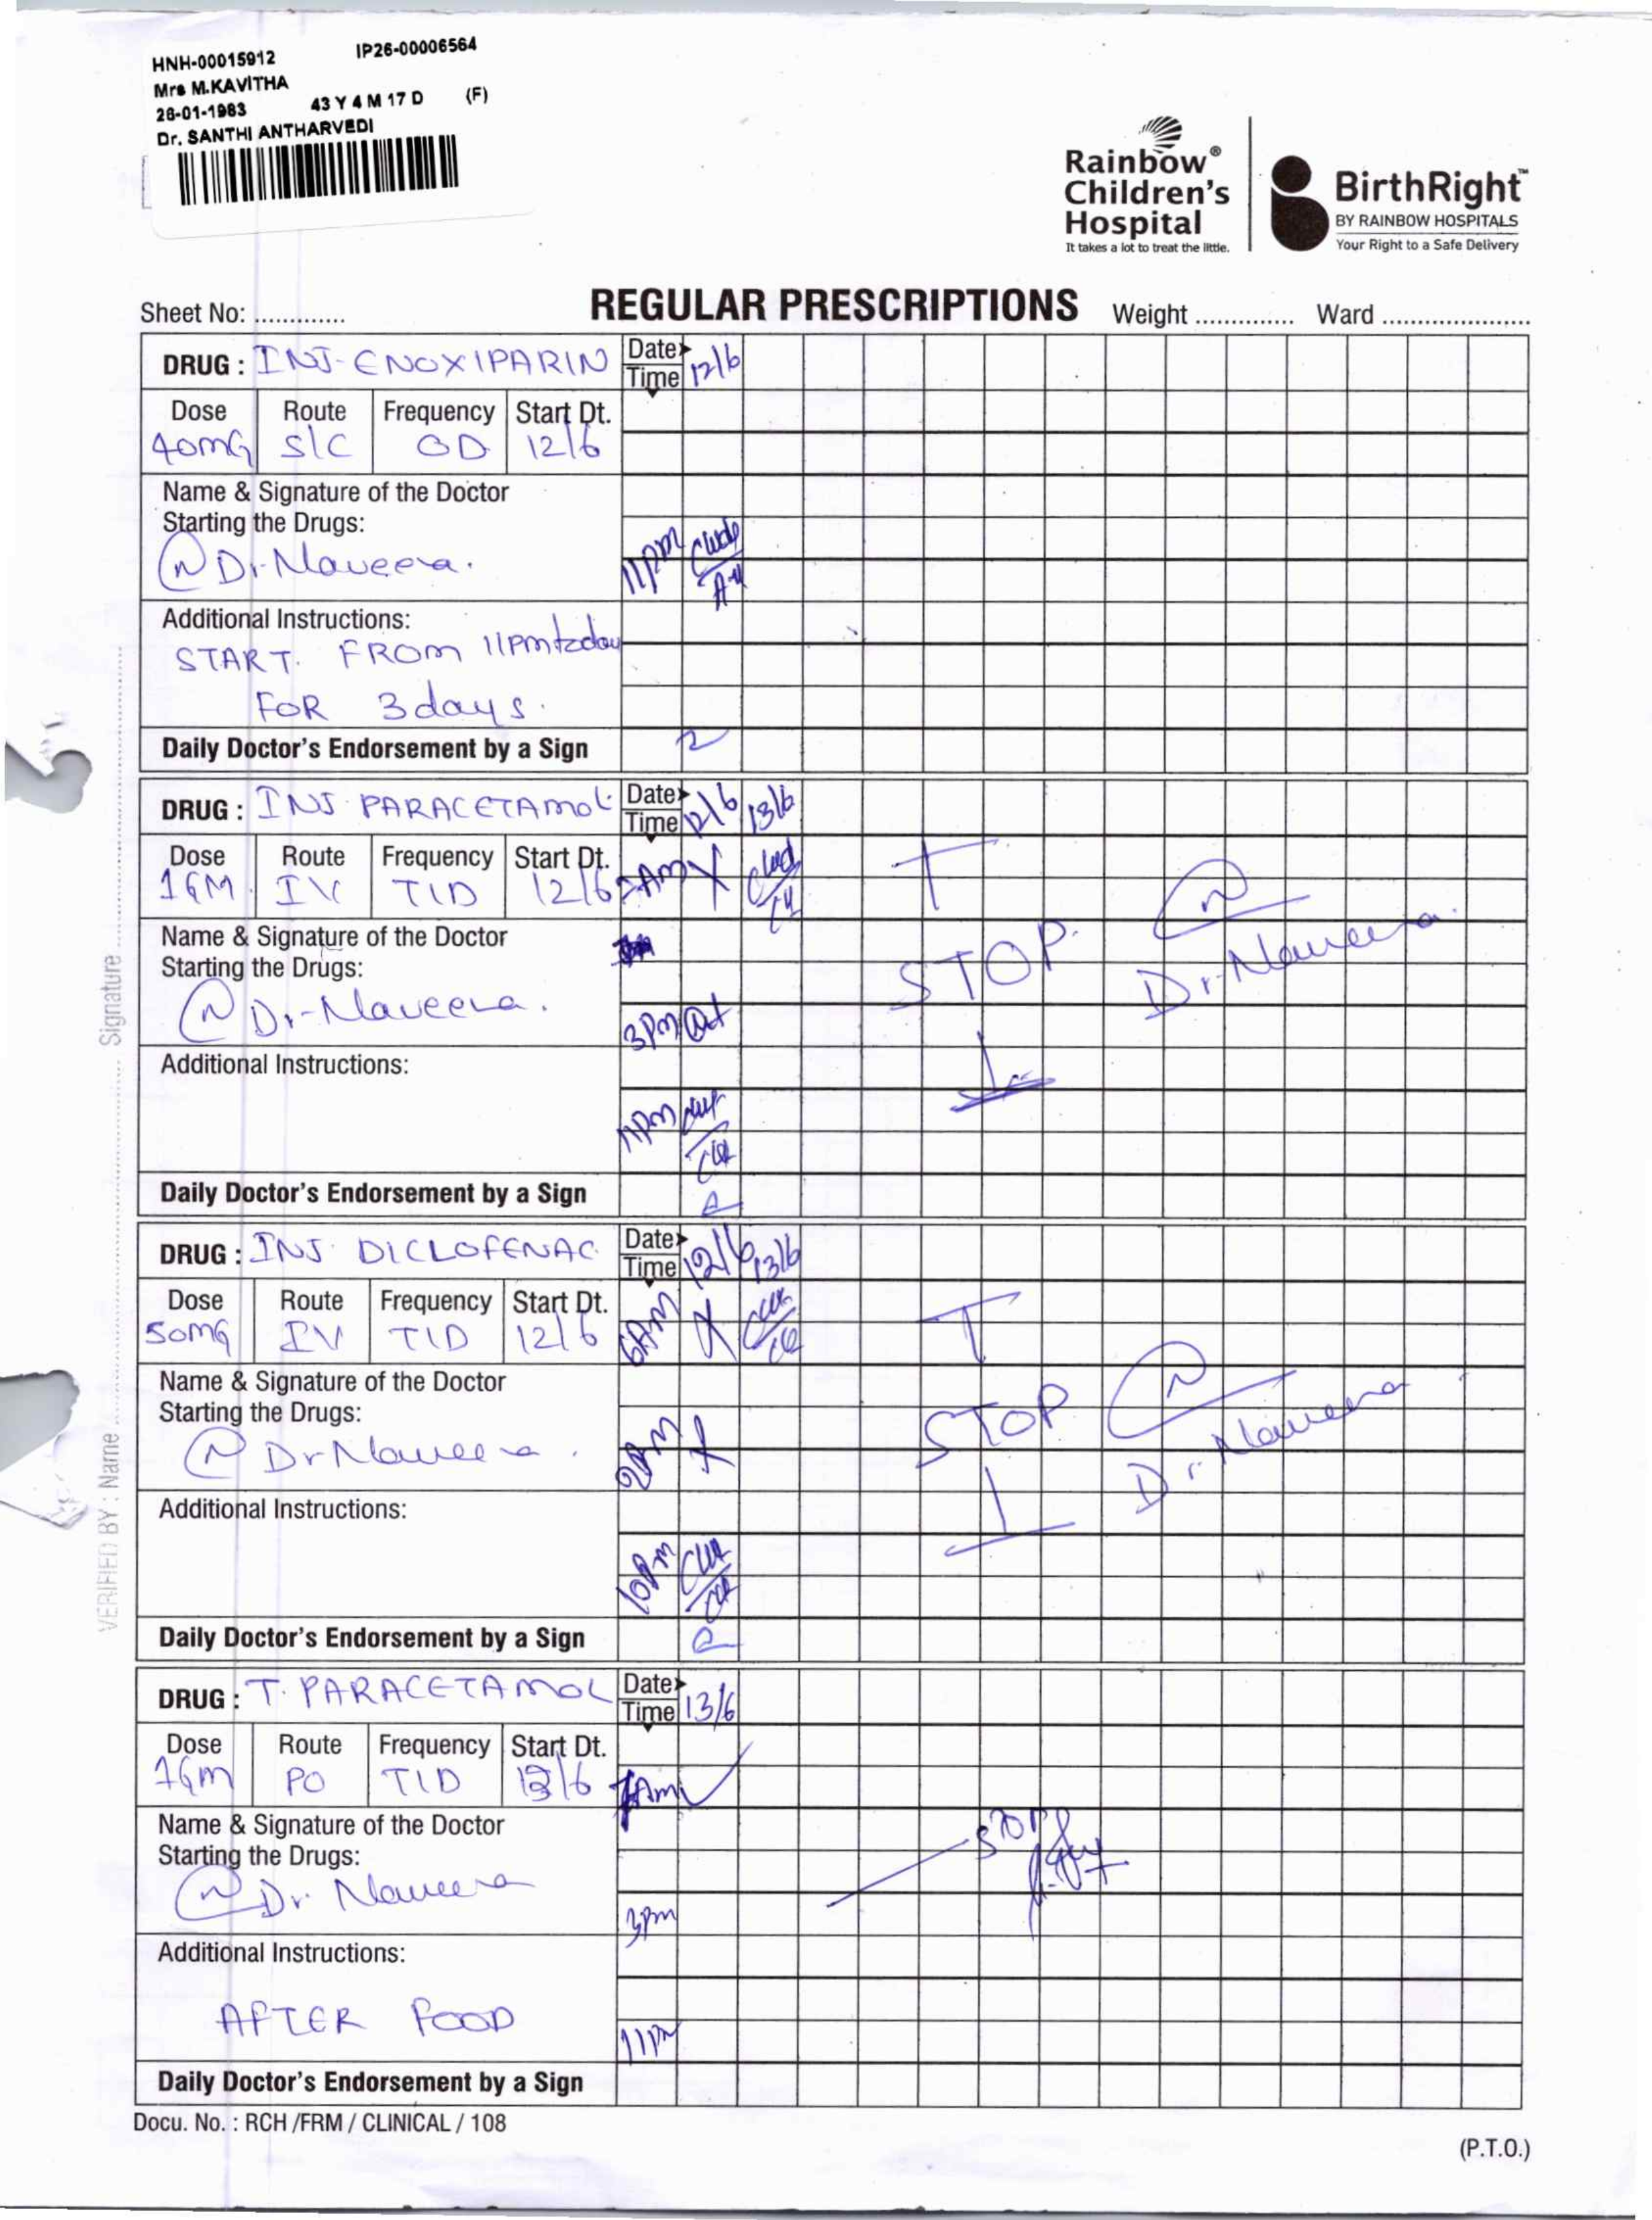 HNH-00015912 IP26-00006564
Mrs M.KAVITHA
26-01-1983 43 Y 4 M 17 D (F)
Dr. SANTHI ANTHARVEDI
Rainbow®
Children's
Hospital
It takes a lot to treat the little.
BirthRight™
BY RAINBOW HOSPITALS
Your Right to a Safe Delivery
Sheet No: ............. REGULAR PRESCRIPTIONS Weight .............. Ward .....................
DRUG : INJ- ENOXIPARIN Date Time 12/6
Dose Route Frequency Start Dt.
40MG S/C OD 12/6
Name & Signature of the Doctor
Starting the Drugs:
Dr. Naveena.
11pm
Additional Instructions:
START. FROM 11pm today
FOR 3 days.
Daily Doctor's Endorsement by a Sign
DRUG : INJ PARACETAMOL Date Time 12/6 13/6
Dose Route Frequency Start Dt.
1GM. IV TID 12/6 7AM X
Name & Signature of the Doctor
Starting the Drugs:
Dr. Naveena.
STOP. Dr. Naveena.
3pm
Additional Instructions:
11pm
Daily Doctor's Endorsement by a Sign
DRUG : INJ DICLOFENAC Date Time 12/6 13/6
Dose Route Frequency Start Dt.
50MG IV TID 12/6 6AM X
Name & Signature of the Doctor
Starting the Drugs:
Dr Naveena.
2PM X
STOP Dr. Naveena
Additional Instructions:
10pm
Daily Doctor's Endorsement by a Sign
DRUG : T. PARACETAMOL Date Time 13/6
Dose Route Frequency Start Dt.
1Gm PO TID 13/6 7Am
Name & Signature of the Doctor
Starting the Drugs:
Dr. Naveena
STOP
3pm
Additional Instructions:
AFTER FOOD
11pm
Daily Doctor's Endorsement by a Sign
Docu. No. : RCH /FRM / CLINICAL / 108
(P.T.O.)
VERIFIED BY : Name ........ Signature ........